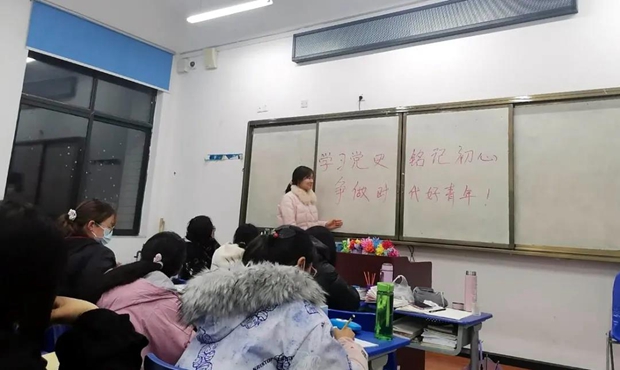 学习党史 铭记初心
争做时代好青年！